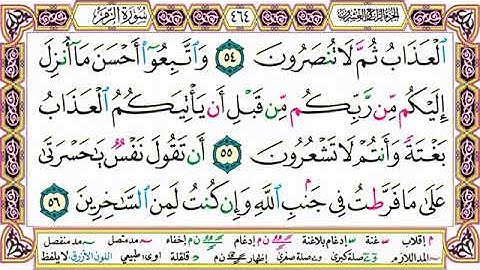 سورة الزمر ٤٦٤ الجزء الرابع والعشرون
الْعَذَابُ ثُمَّ لَا تُنصَرُونَ ٥٤ وَاتَّبِعُوٓا أَحْسَنَ مَآ أُنزِلَ
إِلَيْكُم مِّن رَّبِّكُم مِّن قَبْلِ أَن يَأْتِيَكُمُ الْعَذَابُ
بَغْتَةً وَأَنتُمْ لَا تَشْعُرُونَ ٥٥ أَن تَقُولَ نَفْسٌ يَٰحَسْرَتَىٰ
عَلَىٰ مَا فَرَّطتُ فِي جَنۢبِ اللَّهِ وَإِن كُنتُ لَمِنَ السَّٰخِرِينَ ٥٦
م إقلاب غنة إدغام إدغام بلاغنة ن م إخفاء مد متصل مد منفصل
المد اللازم صلة كبرى صلة صغرى إظهار ن م قلقلة اوى: طبيعي اللون الأزرق لا يلفظ